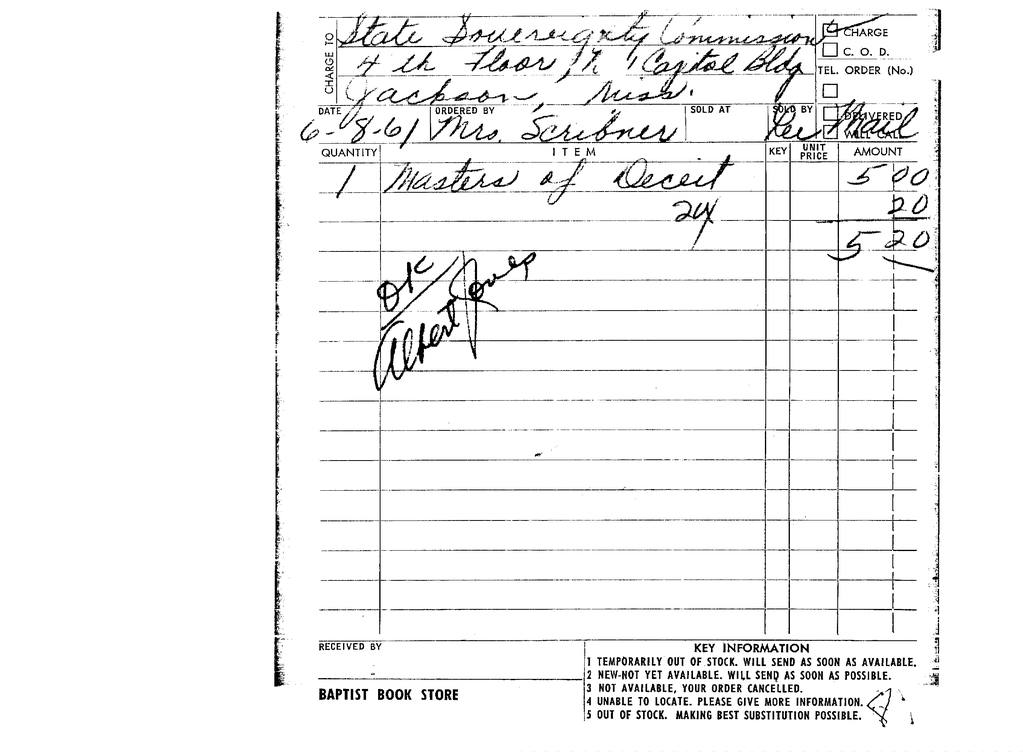 CHARGE TO
State Sovereignty Commission
4 th Floor, N. Capitol Bldg
Jackson, Miss.
CHARGE
C. O. D.
TEL. ORDER (No.)
DELIVERED
WILL CALL
DATE ORDERED BY SOLD AT SOLD BY
6-8-61 Mrs. Scribner Per Mail
QUANTITY ITEM KEY UNIT PRICE AMOUNT
1 Masters of Deceit 5 00
20
5 20
OK
Albert Jones
RECEIVED BY
BAPTIST BOOK STORE
KEY INFORMATION
1 TEMPORARILY OUT OF STOCK. WILL SEND AS SOON AS AVAILABLE.
2 NEW-NOT YET AVAILABLE. WILL SEND AS SOON AS POSSIBLE.
3 NOT AVAILABLE, YOUR ORDER CANCELLED.
4 UNABLE TO LOCATE. PLEASE GIVE MORE INFORMATION.
5 OUT OF STOCK. MAKING BEST SUBSTITUTION POSSIBLE.